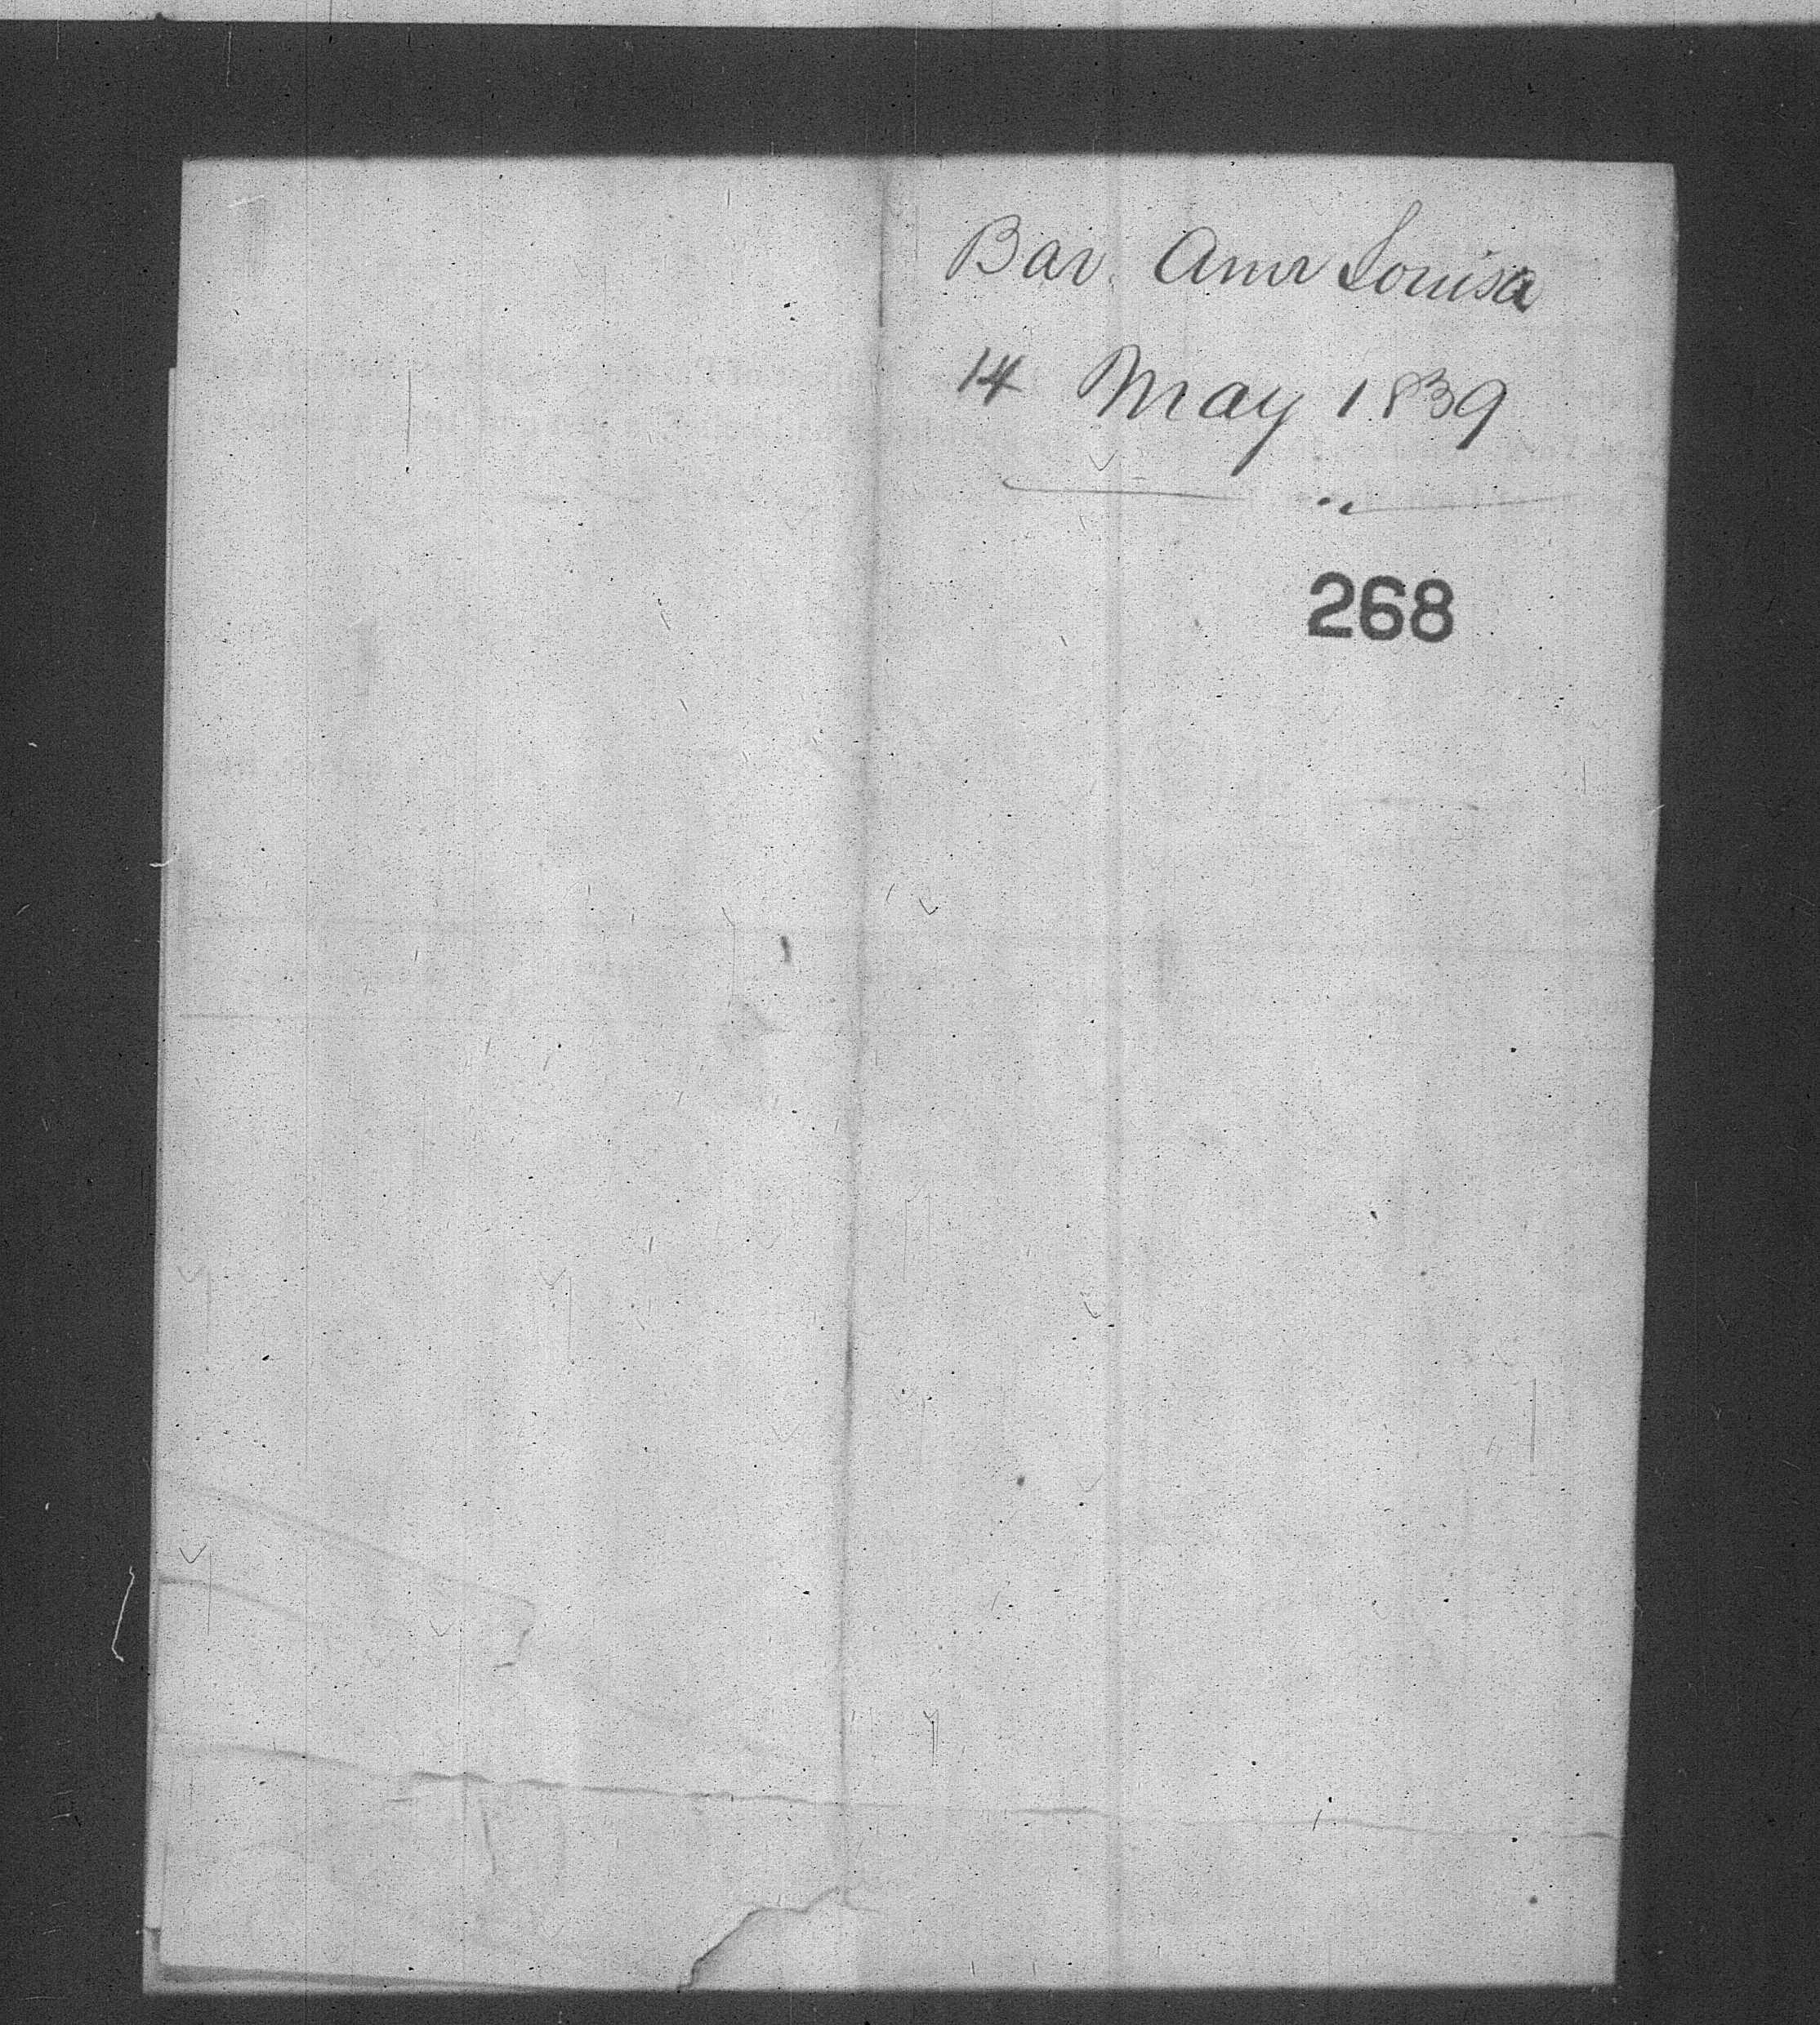 Bar. Ann Louisa
14 May 1839
268